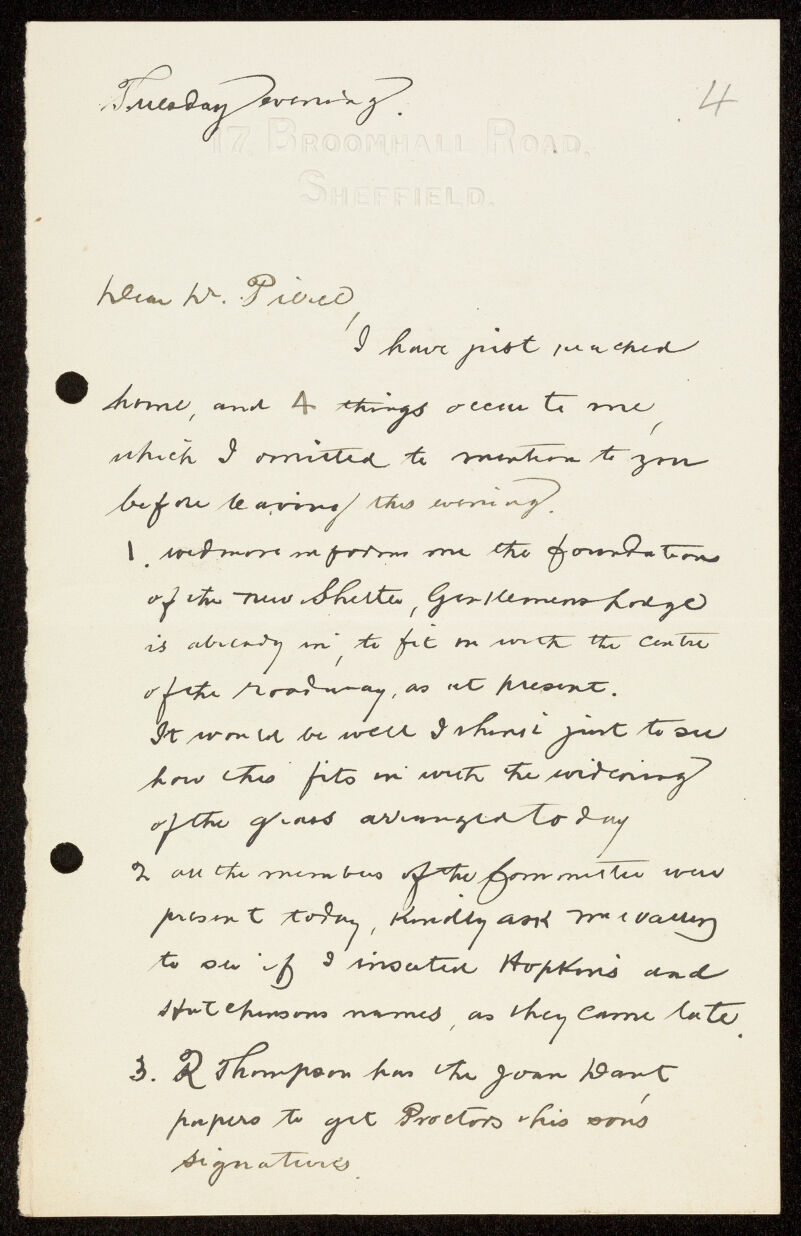 Tuesday evening.
4
17, BROOMHALL ROAD,
SHEFFIELD.
Dear Dr. Pierce,
I have just reached
home, and 4 things occur to me,
which I omitted to mention to you
before leaving this evening.
1. Wedmore informs me the foundations
of the new Shelter, Gentlemens Lodge
is already in, to fit in with the centre
of the roadway, as at present.
It would be well I think just to see
how this fits in with the widening
of the grass arranged today
2 all the members of the Committee were
present today, Kindly ask
to see if I inserted Hopkins and
Hutchinsons names, as they came late.
3. R Thompson has the Joan Dant
papers to get Proctors & his son's
signatures.